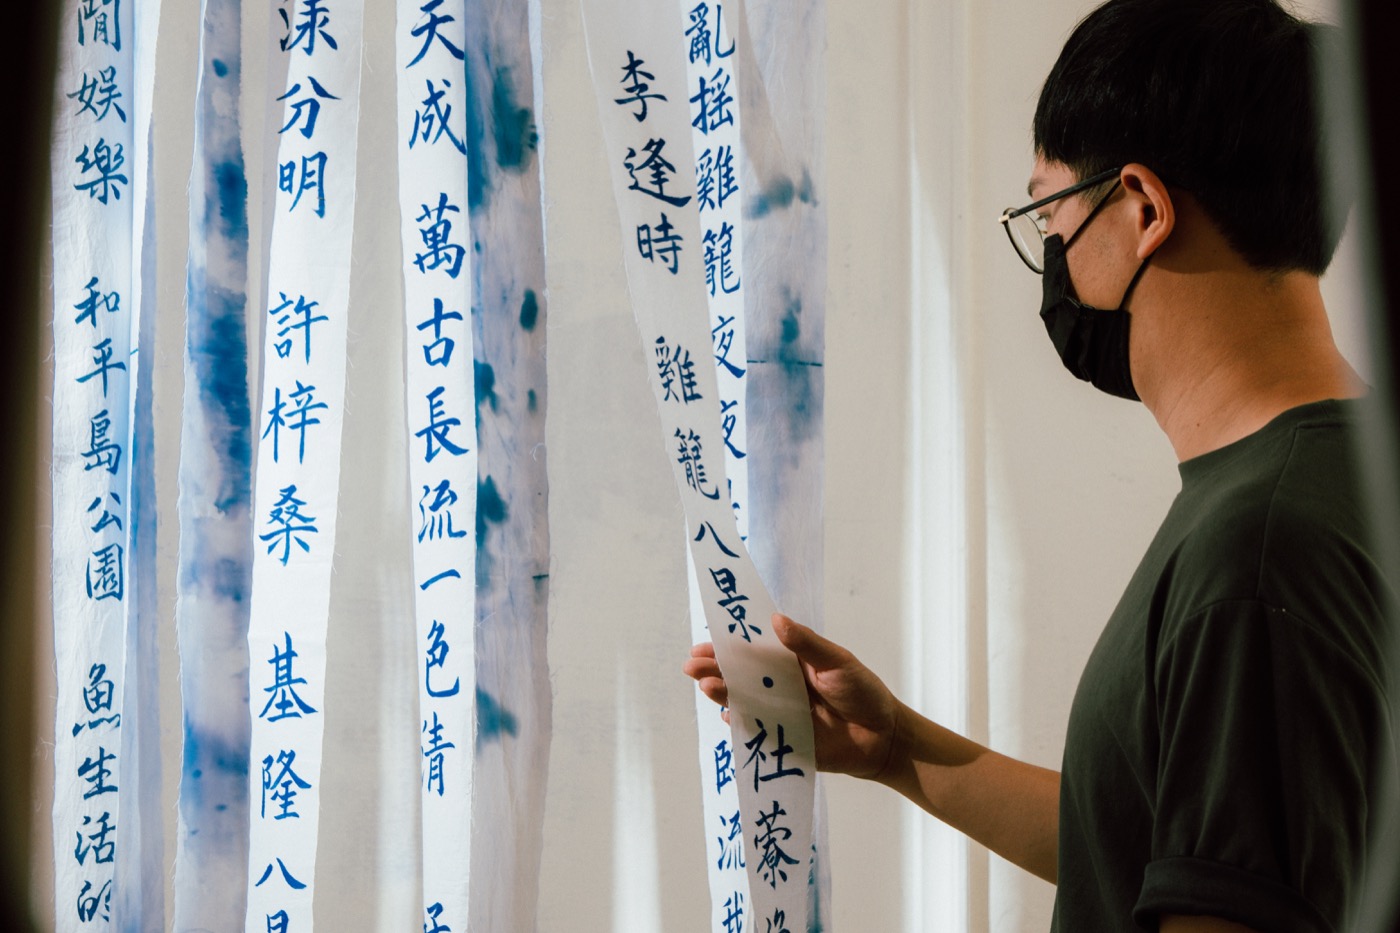 亂搖雞籠夜夜 流我
李逢時 雞籠八景・社藔
天成 萬古長流一色清
漾分明 許梓桑 基隆八景
閒娛樂 和平島公園 魚生活的